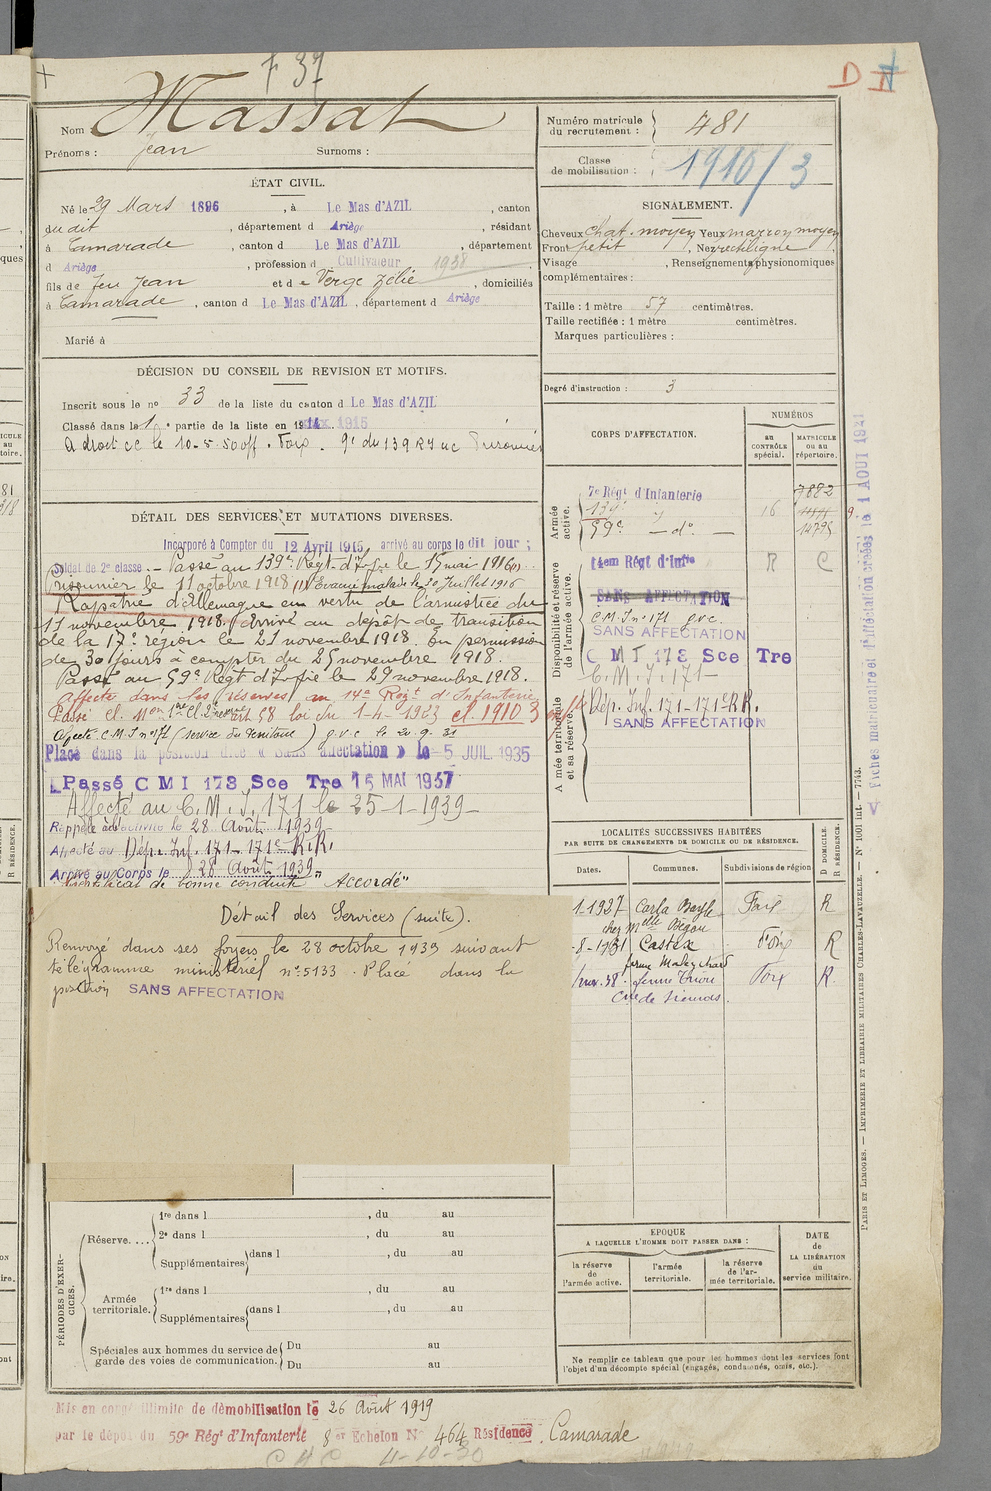 F 37
D
Massat
Nom
Prénoms : Jean Surnoms :
Numéro matricule du recrutement : 481
Classe de mobilisation : 1910/3
ÉTAT CIVIL.
Né le 29 Mars 1896, à Le Mas d'AZIL, canton
du dit, département d Ariège, résidant
à Camarade, canton d Le Mas d'AZIL, département
d Ariège, profession d Cultivateur 1938
fils de feu Jean et de Verge Zélie, domiciliés
à Camarade, canton d Le Mas d'AZIL, département d Ariège
Marié à
SIGNALEMENT.
Cheveux chat. moyen Yeux marron moyen
Front petit, Nez rectiligne
Visage , Renseignements physionomiques
complémentaires :
Taille : 1 mètre 57 centimètres.
Taille rectifiée : 1 mètre centimètres.
Marques particulières :
Degré d'instruction : 3
DÉCISION DU CONSEIL DE REVISION ET MOTIFS.
Inscrit sous le no 33 de la liste du canton d Le Mas d'AZIL
Classé dans la 1e partie de la liste en 1915
DÉTAIL DES SERVICES ET MUTATIONS DIVERSES.
Incorporé à Compter du 12 Avril 1915, arrivé au corps le dit jour ;
Soldat de 2e classe. - Passé au 139e Régt d'Infie le 15 mai 1916
Prisonnier le 11 octobre 1918 (1) Evacué malade le 30 Juillet 1916
Rapatrié d'Allemagne en vertu de l'armistice du
11 novembre 1918. arrivé au dépôt de transition
de la 17e région le 21 novembre 1918. En permission
de 30 jours à compter du 25 novembre 1918.
Passé au 59e Régt d'Infie le 29 novembre 1918.
Affecté dans les réserves au 14e Régt d'Infanterie
Passé cl. art 58 loi du 1-4-1923 cl. 1910 3
Affecté C.M.I n° 171 (service du territoire) g.v.c. le 20.9.31
Placé dans la position dite « Sans affectation » le 5 JUIL. 1935
Passé C M I 173 Sce Tre 15 MAI 1937
Affecté au C.M.I. 171 le 25-1-1939
Rappelé à l'activité le 28 Août 1939
Affecté au Dép. Inf. 171 - 171e R.R.
Arrivé au Corps le 28 Août 1939
Certificat de bonne conduite "Accordé"
Détail des Services (suite).
Renvoyé dans ses foyers le 28 octobre 1939 suivant
télégramme ministériel n° 5133. Placé dans la
position SANS AFFECTATION
CORPS D'AFFECTATION.
NUMÉROS
au CONTRÔLE spécial.
MATRICULE ou au répertoire.
Armée active.
7e Régt d'Infanterie 7882
139e 16
59e — do — 14795
Disponibilité et réserve de l'armée active.
14em Régt d'Infie R C
SANS AFFECTATION
C.M.I n° 171 g.v.c.
SANS AFFECTATION
C M I 173 Sce Tre
C.M.I. 171
Armée territoriale et sa réserve.
Dép. Inf. 171 - 171e R.R.
SANS AFFECTATION
Fiches matriculaire et d'affectation créées le 1 AOUT 1921
LOCALITÉS SUCCESSIVES HABITÉES
PAR SUITE DE CHANGEMENTS DE DOMICILE OU DE RÉSIDENCE.
Dates. Communes. Subdivisions de région D DOMICILE. R RÉSIDENCE.
1-1927 Carla Bayle Foix R
chez Melle Bégou
-8-1931 Castéx Foix R
38 Foix R.
PARIS ET LIMOGES. — IMPRIMERIE ET LIBRAIRIE MILITAIRES CHARLES-LAVAUZELLE. — No 1001 int. — 7743.
PÉRIODES D'EXERCICES.
Réserve.... 1re dans l , du au
2e dans l , du au
Supplémentaires dans l , du au
Armée territoriale. 1re dans l , du au
Supplémentaires dans l , du au
Spéciales aux hommes du service de garde des voies de communication. Du au
Du au
EPOQUE
A LAQUELLE L'HOMME DOIT PASSER DANS :
la réserve de l'armée active.
l'armée territoriale.
la réserve de l'armée territoriale.
DATE de LA LIBÉRATION du service militaire.
Ne remplir ce tableau que pour les hommes dont les services font l'objet d'un décompte spécial (engagés, condamnés, omis, etc.).
Mis en congé illimité de démobilisation le 26 Août 1919
par le dépôt du 59e Régt d'Infanterie 8e Echelon No 464 Résidence Camarade